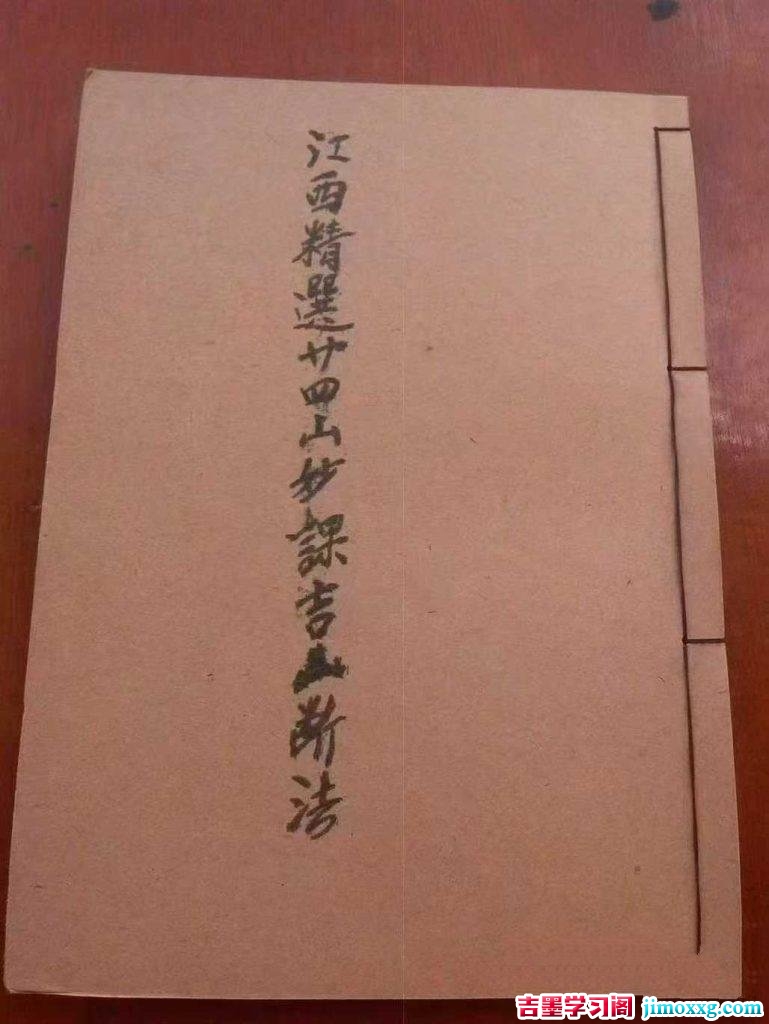 江西精選廿四山妙課吉凶断法
吉墨学习阁 jimoxxg.com